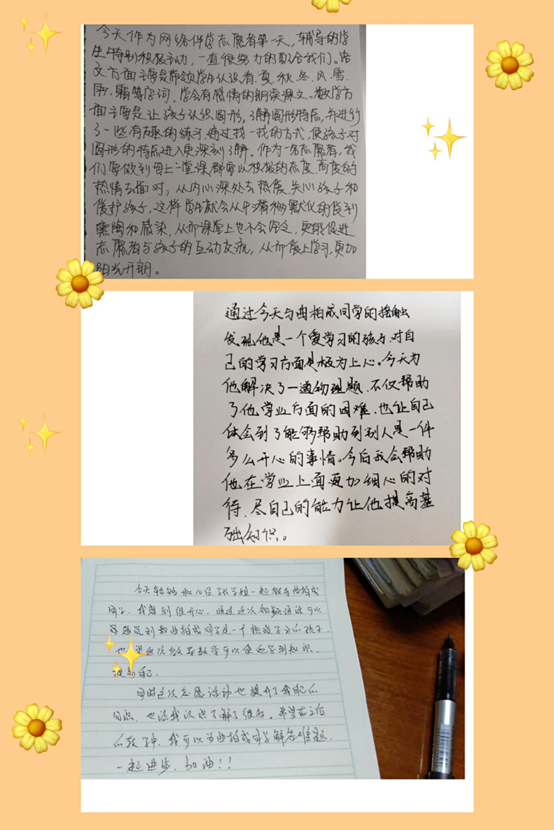 今天作为网络伴学志愿者第一天。辅导的学
生特别积极主动，一直很努力的配合我们。语
文方面主要是带领学生认识春、夏、秋、冬、风、雪、
雨、霜等字词，学会有感情的朗读课文。数学方
面主要是让孩子认识图形，了解图形特点，并进行
了一些有趣的练习，通过找一找的方式，使孩子对
图形的特点进入更深刻了解。作为一名志愿者，我
们要做到每上一堂课都要以积极的态度，高度的
热情去面对，从内心深处去热爱、关心孩子和
保护孩子，这样学生就会从中潜移默化的受到
熏陶和感染，从而课堂上也不会倦，更能促进
志愿者与孩子的互动交流，从而爱上学习，更加
阳光开朗。
通过今天与曲柏成同学的接触
发现他是一个爱学习的孩子，对自
己的学习方面是极为上心。今天为
他解决了一道物理题，不仅帮助
了他学业方面的困难，也让自己
体会到了能够帮助到别人是一件
多么开心的事情。今后我会帮助
他在学业上面更加细心的对
待，尽自己的能力让他提高基
础知识。
今天我和一起教曲柏成
同学，我感到很开心，通过这次和聊天可以
感觉到曲柏成同学是一个的孩子
也这次在数学可以使他学到知识，
同时这次志愿活动也提升了我自己的
也让我认识了解了很多。希望在之后
的教学中，我可以为曲柏成同学解答难题，
一起进步，加油！！